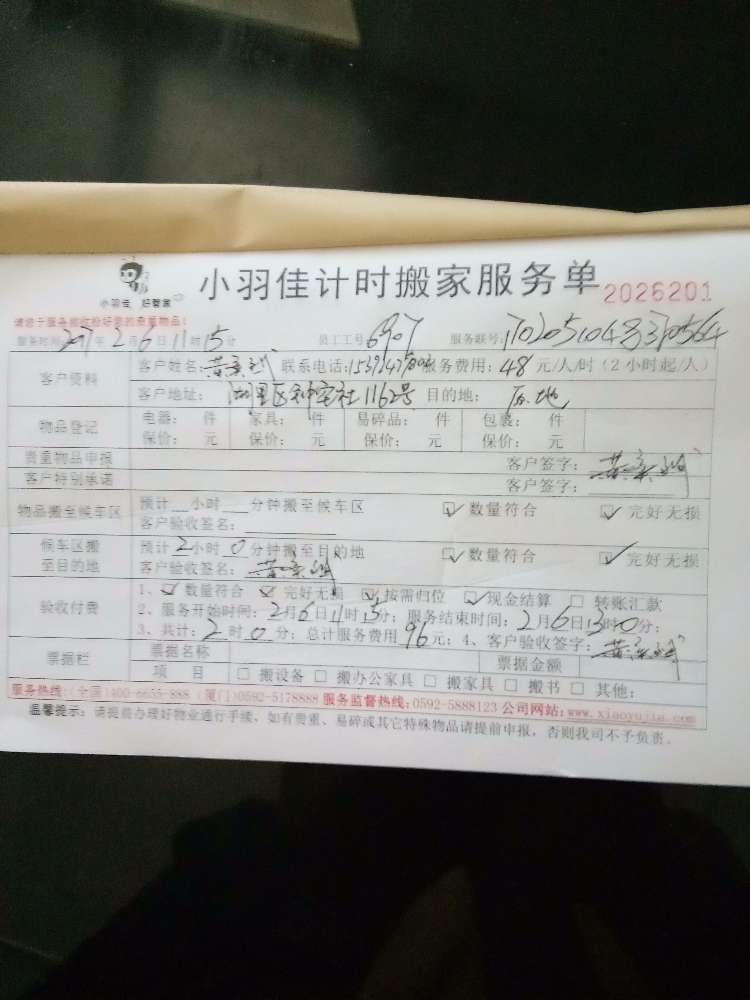 小羽佳 好管家
小羽佳计时搬家服务单 2026201
服务时间:2017年2月6日11时15分 员工工号:6907 服务联号:
客户资料 客户姓名: 联系电话: 服务费用:48元/人/时(2小时起/人)
客户地址:湖里区 社1162号 目的地:原地
物品登记 电器: 件 家具: 件 易碎品: 件 包裹: 件
保价: 元 保价: 元 保价: 元 保价: 元
贵重物品申报 客户签字:
客户特别承诺 客户签字:
物品搬至候车区 预计 小时 分钟搬至候车区 ☑数量符合 ☑完好无损
客户验收签名:
候车区搬至目的地 预计2小时0分钟搬至目的地 ☑数量符合 ☑完好无损
客户验收签名:
验收付费 1、☑数量符合 ☑完好无损 ☑按需归位 ☑现金结算 □转账汇款
2、服务开始时间:2月6日11时15分;服务结束时间:2月6日13时0分;
3、共计:2时0分;总计服务费用96元;4、客户验收签字:
票据栏 票据名称 票据金额
项 目 □搬设备 □搬办公家具 □搬家具 □搬书 □其他:
服务热线:(全国)400-6655-888 (厦门)0592-5178888 服务监督热线:0592-5888123 公司网站:www.xiaoyujia.com
温馨提示:请提前办理好物业通行手续,如有贵重、易碎或其它特殊物品请提前申报,否则我司不予负责。